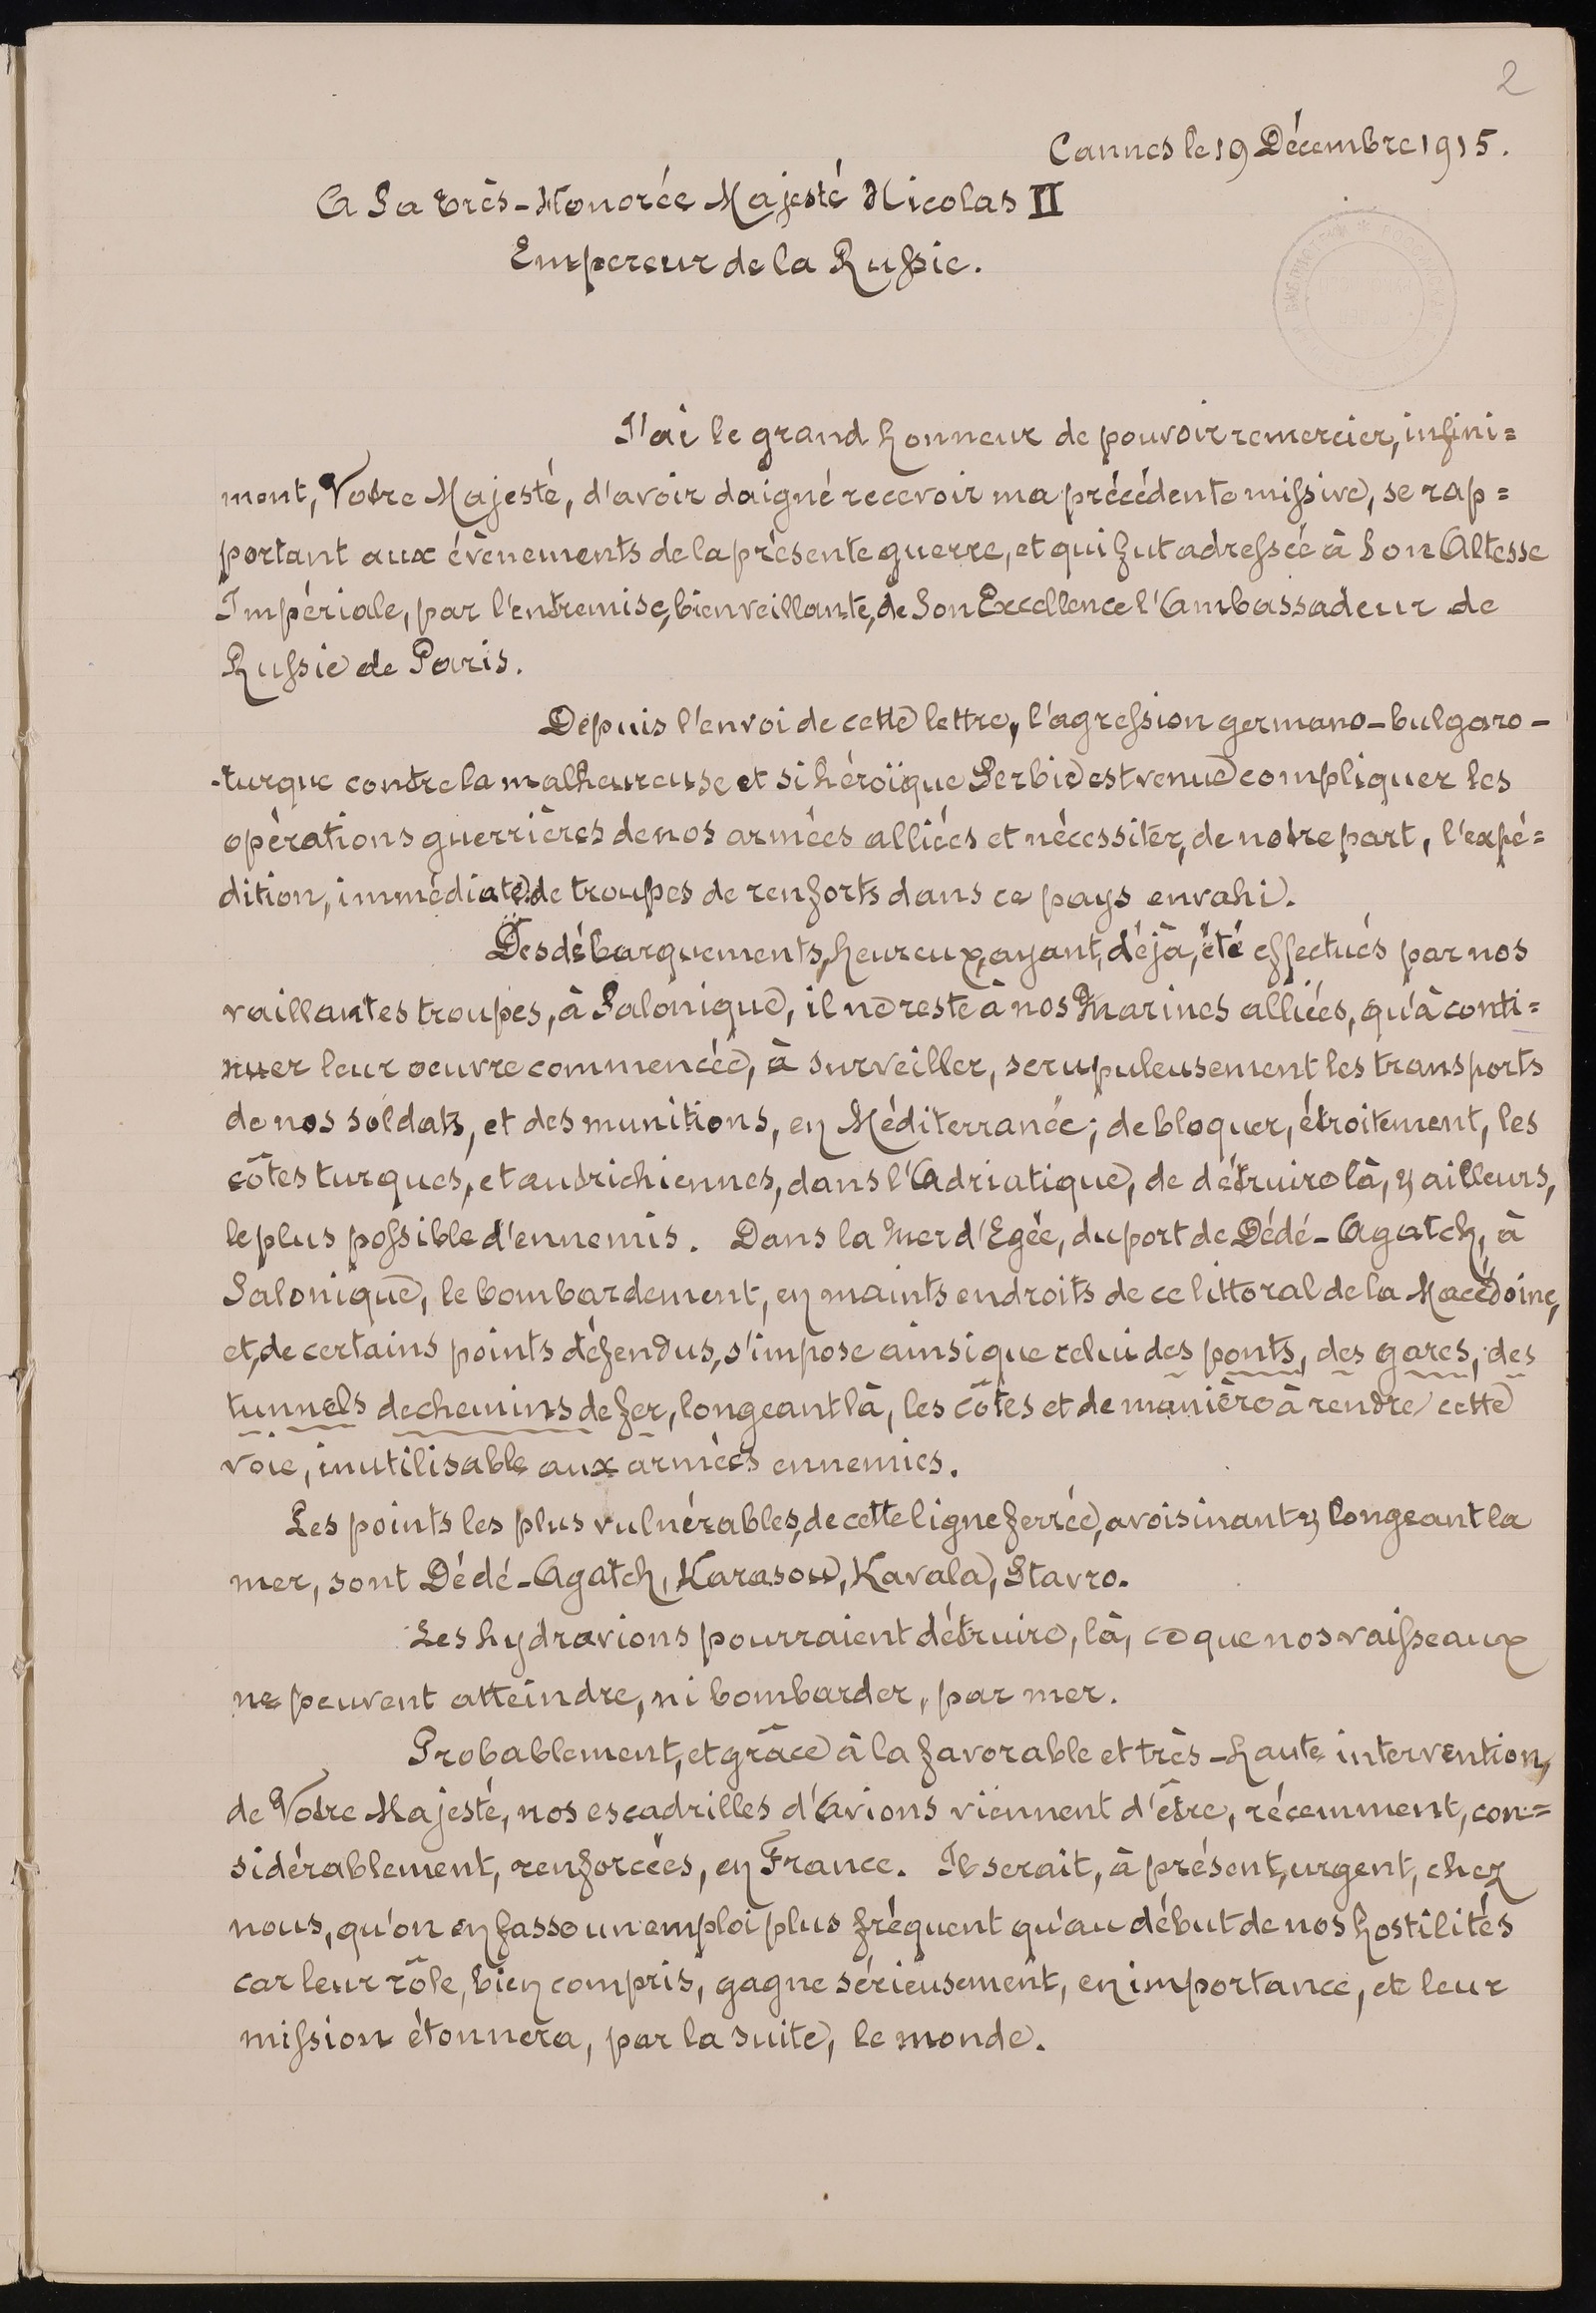 2
Cannes le 19 Décembre 1915.
A Sa très-Honorée Majesté Nicolas II
Empereur de la Russie.
J'ai le grand honneur de pouvoir remercier, infini=
ment, Votre Majesté, d'avoir daigné recevoir ma précédente missive, se rap=
portant aux évènements de la présente guerre, et qui fut adressée à Son Altesse
Impériale, par l'entremise, bienveillante, de Son Excellence l'Ambassadeur de
Russie de Paris.
Depuis l'envoi de cette lettre, l'agression germano-bulgaro-
-turque contre la malheureuse et si héroïque Serbie est venue compliquer les
opérations guerrières de nos armées alliées et nécessiter, de notre part, l'expé=
dition, immédiate, de troupes de renforts dans ce pays envahi.
Des débarquements, heureux, ayant, déjà, été effectués par nos
vaillantes troupes, à Salonique, il ne reste à nos Marines alliées, qu'à conti=
nuer leur oeuvre commencée, à surveiller, scrupuleusement les transports
de nos soldats, et des munitions, en Méditerranée; de bloquer, étroitement, les
côtes turques, et autrichiennes, dans l'Adriatique, de détruire là, & ailleurs,
le plus possible d'ennemis. Dans la Mer d'Egée, du port de Dédé-Agatch, à
Salonique, le bombardement, en maints endroits de ce littoral de la Macédoine,
et, de certains points défendus, s'impose ainsi que celui des ponts, des gares, des
tunnels de chemins de fer, longeant là, les côtes et de manière à rendre cette
voie, inutilisable aux armées ennemies.
Les points les plus vulnérables, de cette ligne ferrée, avoisinant & longeant la
mer, sont Dédé-Agatch, Karasou, Kavala, Stavro.
Les hydravions pourraient détruire, là, ce que nos vaisseaux
ne peuvent atteindre, ni bombarder, par mer.
Probablement, et grâce à la favorable et très-haute intervention,
de Votre Majesté, nos escadrilles d'Avions viennent d'être, récemment, con=
sidérablement, renforcées, en France. Il serait, à présent, urgent, chez
nous, qu'on en fasse un emploi plus fréquent qu'au début de nos hostilités
car leur rôle, bien compris, gagne sérieusement, en importance, et leur
mission étonnera, par la suite, le monde.